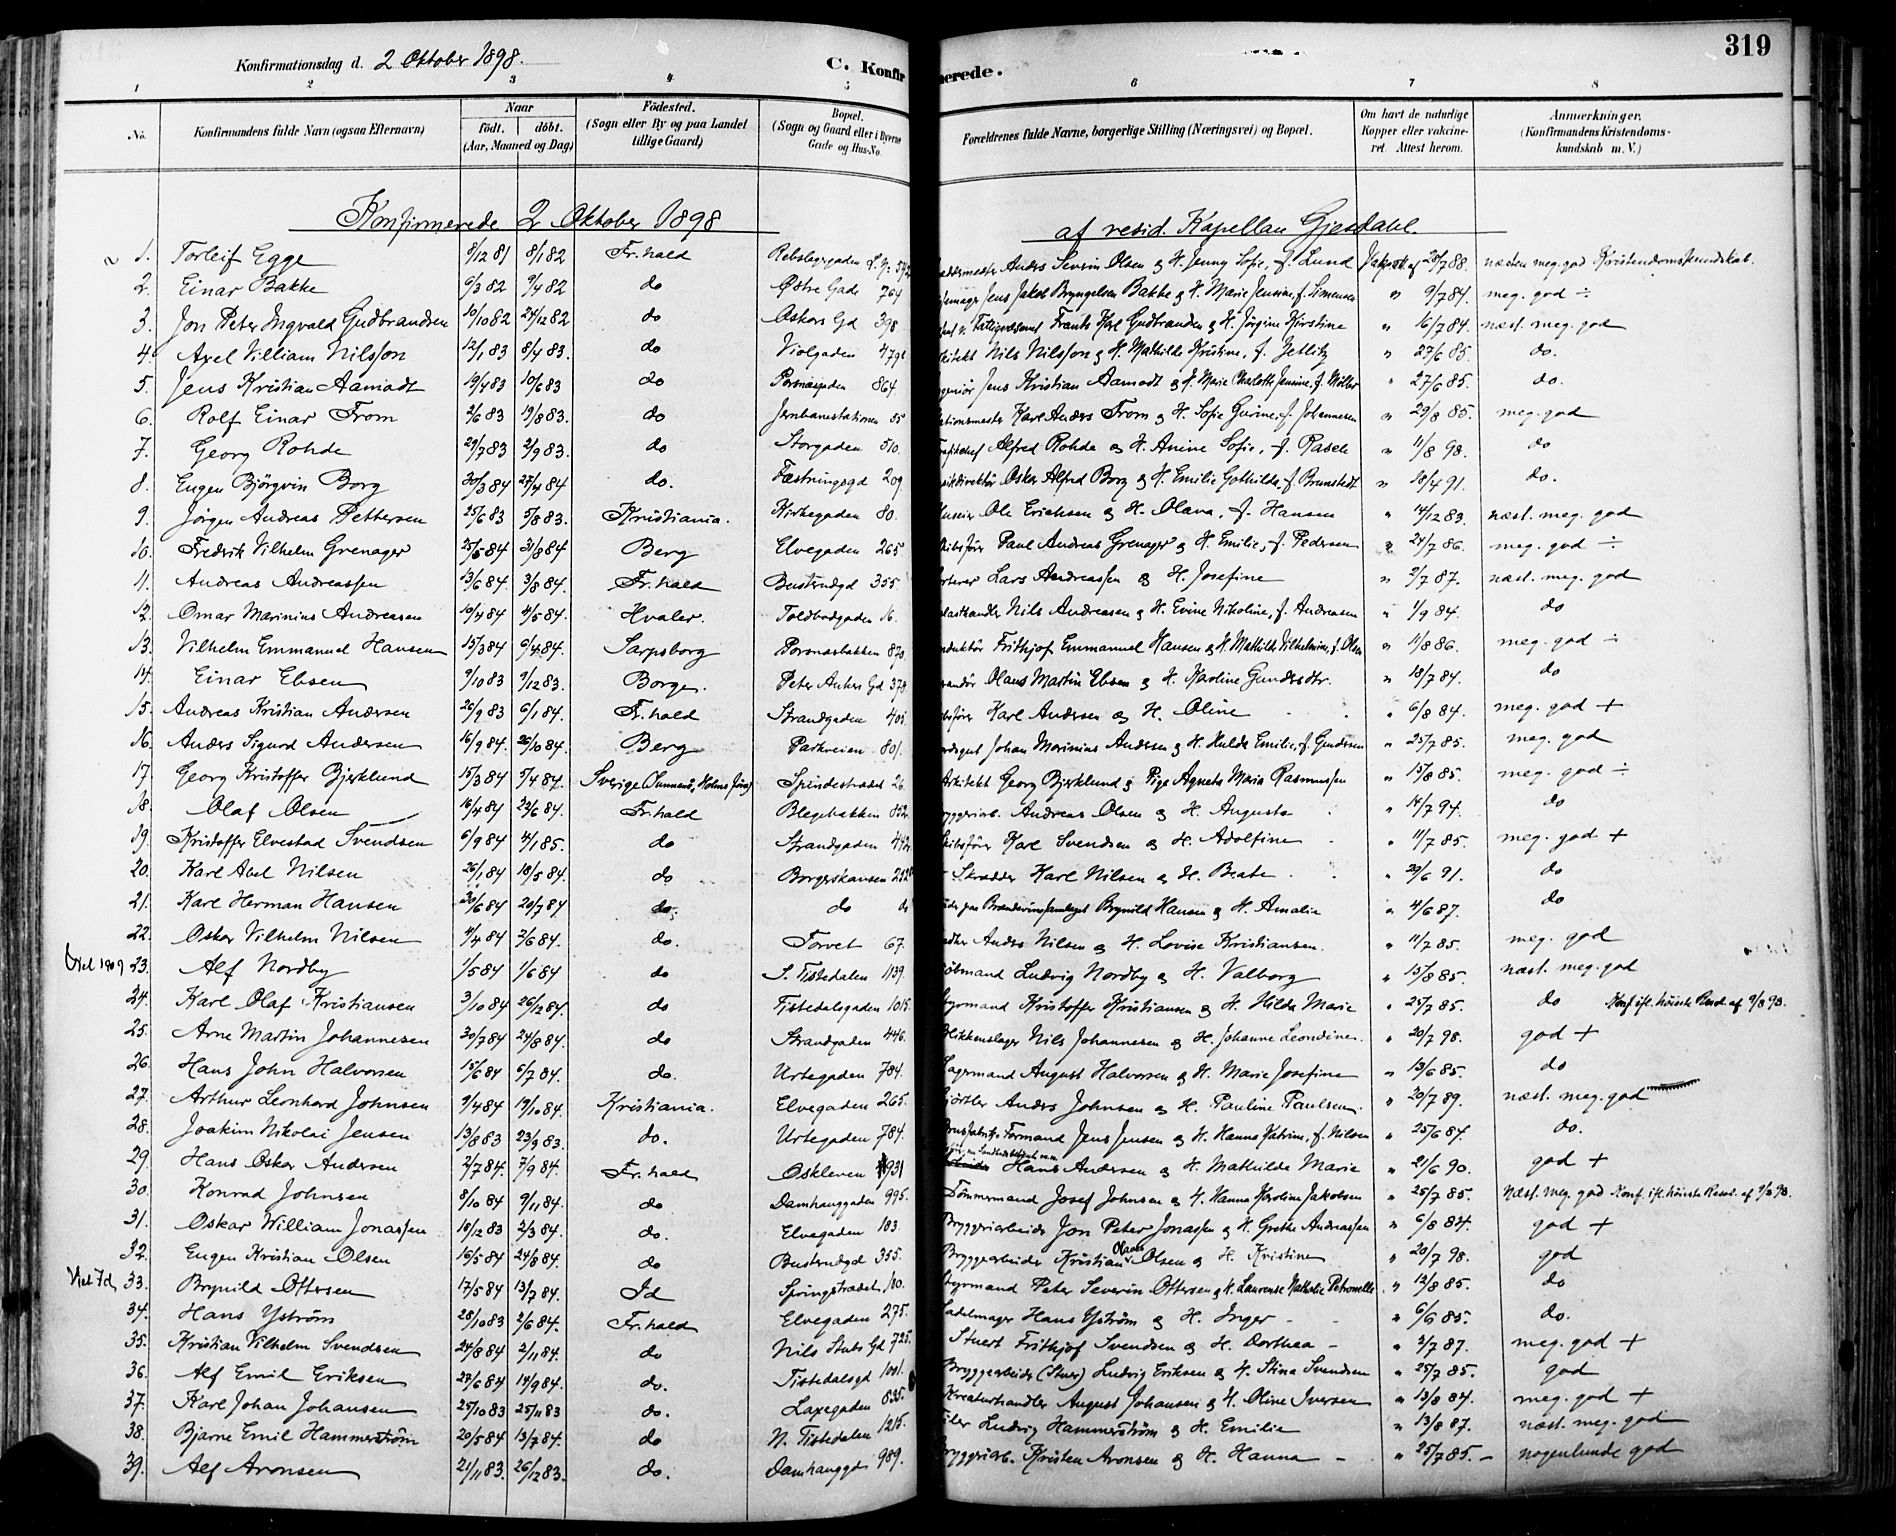 319
Konfirmationsdag d. 2 Oktober 1898.
C. Konfirmerede.
1 2 3 4 5 6 7 8
No. Konfirmandens fulde Navn (ogsaa Efternavn) Naar født. døbt. (Aar, Maaned og Dag) Fødested. (Sogn eller By og paa Landet tillige Gaard) Bopæl. (Sogn og Gaard eller i Byerne Gade og Hus-No. Forældrenes fulde Navne, borgerlige Stilling (Næringsvei) og Bopæl. Om havt de naturlige Kopper eller vakcineret. Attest herom. Anmærkninger. (Konfirmandens Kristendomskundskab m. V.)
Konfirmerede 2 Oktober 1898 af resid. Kapellan Gjesdahl.
1. Torleif Egge 8/12 81 8/1 82 Fr.hald Rebslagergaden Anders Severin Olsen & H. Jenny Sofie, f. Lund 20/7 88. næsten meg. god Kristendomskundskab.
2. Einar Bakke 6/3 82 9/4 82 do Østre Gade 764 Jens Jakob Bryngelsen Bakke & H. Marie Jensine, f. Simensen " 9/7 84. meg. god ÷
3. Jon Peter Ingvald Gudbrandsen 10/10 82 24/12 82 do Oskars Gd 398 Frants Karl Gudbrandsen & H. Jørgine Kirstine " 16/7 84. næst. meg. god
4. Axel Villiam Nilsson 12/1 83 8/4 83. do Violgaden Nils Nilsson & H. Mathilde Kristine, f. Zetlitz " 27/6 85. do.
5. Jens Kristian Aamodt 19/4 83 10/6 83 do 864. Jens Kristian Aamodt & H. Marie Charlotte Jensine, f. Møller " 27/6 85. do.
6. Rolf Einar From 2/6 83 19/8 83. do Jernbanestationen 55 Karl Anders From & H. Sofie Gurine, f. Johannesen " 29/8 85. meg. god
7. Georg Rohde 29/7 83 2/9 83. do Storgaden 510. Alfred Rohde & H. Anine Sofie, f. Rasch " 11/8 98. do
8. Eugen Bjørgvin Borg 30/3 84 27/4 84 do. Fæstningsgd 209. Oskar Alfred Borg & H. Emilie Gothilde, f. Brunstedt " 18/4 91. do.
9. Jørgen Andreas Pettersen 25/6 83 5/8 83. Kristiania. Kirkegaden 80. Ole Erichsen & H. Olava, f. Hansen " 14/12 83. næst. meg. god
10. Fredrik Vilhelm Grenager 25/6 84 31/8 84 Berg Elvegaden 265 Paul Andreas Grenager & H. Emilie, f. Pedersen " 24/7 86. meg. god ÷
11. Andreas Andreassen 13/6 84. 3/8 84. Fr.hald Busterudgd 355. Lars Andreassen & H. Josefine " 2/7 87. næst. meg. god
12. Omar Marinius Andreasen 10/4 84 4/5 84. Hvaler. Toldbodgaden 16. Nils Andreasen & H. Evine Nikoline, f. Andreasen " 1/9 84. do
13. Vilhelm Emmanuel Hansen 15/3 84 6/4 84. Sarpsborg Porsnesbakken 870. Frithjof Emmanuel Hansen & H. Mathilde Vilhelmine, f. Olsen " 11/8 86. meg. god ÷
14. Einar Ebsen 9/10 83 9/12 83. Borge. Peter Ankers Gd 378. Olaus Martin Ebsen & H. Karoline Gundersdtr. " 18/7 84. do
15. Andreas Kristian Andersen 26/9 83 6/1 84. Fr.hald Strandgaden 401. Karl Andersen & H. Oline " 6/8 84. meg. god +
16. Anders Sigurd Andersen 16/9 84. 26/10 84. Berg Parkveien 801. Johan Marinius Andersen & H. Hulda Emilie, f. Gundersen " 25/7 85. meg. god
17. Georg Kristoffer Bjerklund 15/3 84 5/4 84. Sverige Spindestrædet 26. Arkitekt Georg Bjerklund & Pige Agneta Maria Rasmussen " 15/8 85. meg. god ÷
18. Olaf Olsen 16/4 84 22/6 84. Fr.hald Blegebakken 852. Andreas Olsen & H. Augusta " 14/7 94. do
19. Kristoffer Elvestad Svendsen 6/9 84 4/1 85. do Strandgaden 442. Karl Svendsen & H. Adolfine " 11/7 85. meg. god +
20. Karl Axel Nilsen 26/1 84 18/5 84. do Borgerskansen 232 Skrædder Karl Nilsen & H. Beate " 20/6 91. do
21. Karl Herman Hansen 20/6 84 20/7 84 do. do do Brynild Hansen & H. Amalie " 4/6 87. do
22. Oskar Vilhelm Nilsen 4/4 84 2/6 84. do. Torvet 67. Anders Nilsen & H. Lovise Kristiansen. " 11/7 85. meg. god
23. Alf Nordby 1/5 84 1/6 84 do S. Tistedalen 1139. Ludvig Nordby & H. Valborg " 15/8 85. næst. meg. god
24. Karl Olaf Kristiansen 3/10 84 26/12 84. do Tistedalsgaden 1015. Kristoffer Kristiansen & H. Hilda Marie " 25/7 85. do Konf. ifl. høieste Resol. af 9/8 98.
25. Arne Martin Johannesen 30/7 84 24/8 84. do Strandgaden 446. Blikkenslager Nils Johannesen & H. Johanne Leondine. " 20/7 98. god +
26. Hans John Halvorsen 15/6 84 6/7 84. do. Urtegaden 784. Lagermand August Halvorsen & H. Marie Josefine " 13/6 85. do
27. Arthur Leonhard Johnsen 9/4 84 19/10 84. Kristiania. Elvegaden 265. Anders Johnsen & H. Pauline Paulsen. " 20/7 89. næst. meg. god
28. Joakim Nikolai Jensen 13/8 83 23/9 83. do. Urtegaden 784. Formand Jens Jensen & H. Hanna Katrine, f. Nilsen " 25/6 84. do.
29. Hans Oskar Andersen 2/7 84. 7/9 84. Fr.hald Oskleven 931 Hans Andersen & H. Mathilde Marie " 21/6 90. god +
30. Konrad Johnsen 8/10 84 9/11 84. do Damhauggaden 995. Tømmermand Josef Johnsen & H. Hanna Karoline Jakobsen " 25/7 85. Næst. meg. god Konf. ifl. høieste Resol. af 9/8 98.
31. Oskar William Jonassen 18/12 83 2/3 84. do. Elvegaden 183. Bryggeriarbeider Jon Peter Jonassen & H. Grethe Andreassen " 6/8 84. god +
32. Eugen Kristian Olsen 16/5 84 24/8 84. do Busterudgd 355. Bryggearbeider Kristian Olaves Olsen & H. Kristine " 20/7 98. god
33. Brynild Ottersen 17/5 84 13/7 84. Id Springstrædet 100. Styrmand Peter Severin Ottersen & H. Laurense Nathalie Petronelle " 12/8 85. do
34. Hans Ystrøm 28/10 83 2/6 84. Fr.hald Elvegaden 275. Sadelmager Hans Ystrøm & H. Inger " 6/6 85. do.
35. Kristian Vilhelm Svendsen 24/8 84 2/11 84. do Nils Stubs Gd 725. Stuert Frithjof Svendsen & H. Dorthea " 2/7 87. meg. god +
36. Alf Emil Eriksen 27/6 84 14/9 84. do. Tistedalsgd 1001. Bryggearbeider (Stuer) Ludvig Eriksen & H. Stina Svendsen " 25/7 85. god
37. Karl Johan Johansen 25/10 83 25/11 83 do. Laxegaden 835. Kreaturhandler August Johansen & H. Oline Iversen " 13/8 84. meg. god +
38. Bjarne Emil Hammerstrøm 20/5 84 13/7 84. do N. Tistedalen 1215. Filer Ludvig Hammerstrøm & H. Emilie " 13/8 87. næst. meg. god
39. Alf Aronsen 21/11 83. 26/12 83. do. Damhauggd 989. Bryggeriarb. Kristen Aronsen & H. Hanna " 25/7 85. nogenlunde god